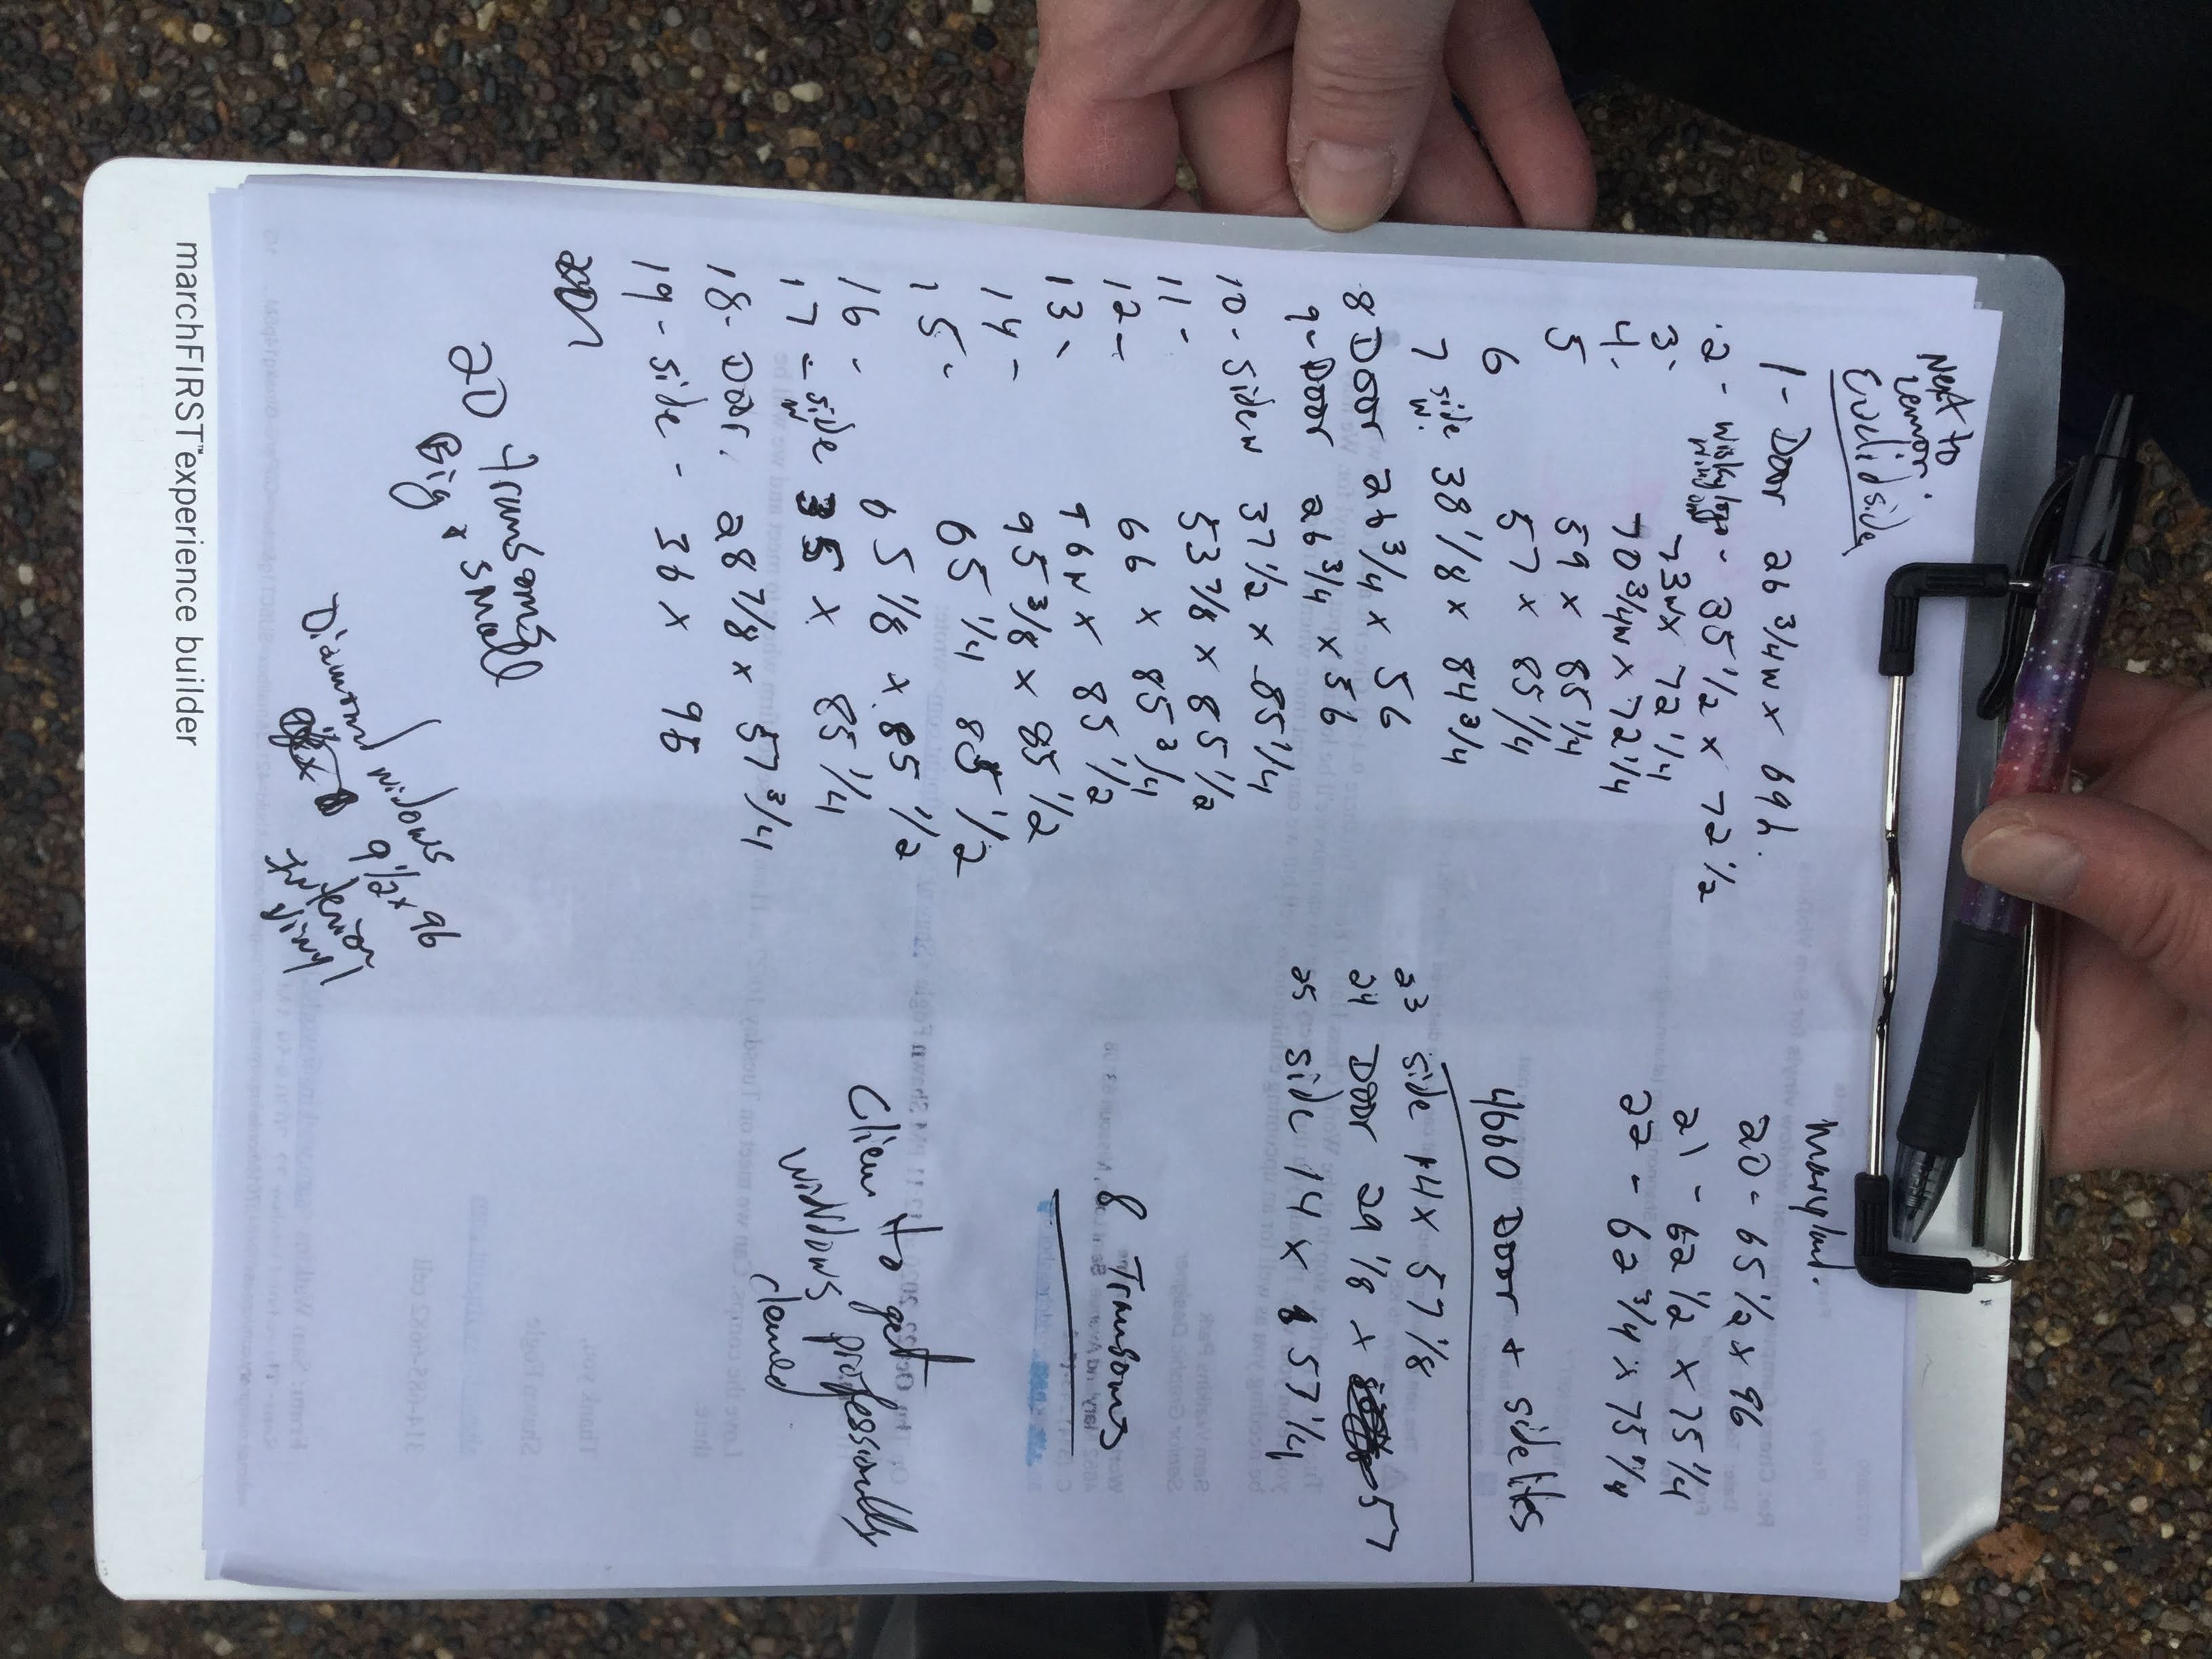 Next to
Euclid side
1 - Door 26 3/4 w x 69 h.
2 - 35 1/2 x 72 1/2
window
3. 73 w x 72 1/4
4. 70 3/4 w x 72 1/4
5 59 x 85 1/4
6 57 x 85 1/4
7 side w. 38 1/8 x 84 3/4
8 Door 26 3/4 x 56
9 - Door 26 3/4 x 56
10 - side w 37 1/2 x 85 1/4
11 - 53 7/8 x 85 1/2
12 - 66 x 85 3/4
13 - 96 w x 85 1/2
14 - 95 3/8 x 85 1/2
15 - 65 1/4 85 1/2
16 - 65 1/8 x 85 1/2
17 - side w 35 x 85 1/4
18 - Door. 28 7/8 x 57 3/4
19 - side - 36 x 96
20 Transoms
Big & small
Diamond windows 9 1/2 x 96
interior
vinyl
Maryland.
20 - 65 1/2 x 96
21 - 62 1/2 x 75 1/4
22 - 62 3/4 x 75 1/4
4660 Door + sidelites
23 side 14 x 57 1/8
24 Door 29 1/8 x 57
25 side 14 x 57 1/4
8 Transoms
Client to get
windows professionally
cleaned
marchFIRST™experience builder